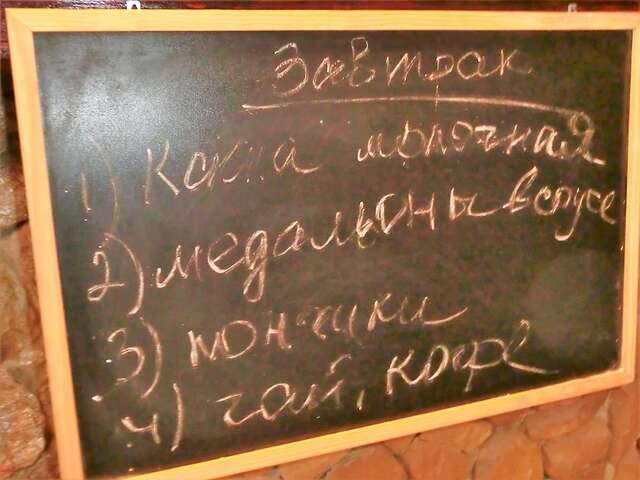 Завтрак
1) Каша молочная
2) медальоны в соусе
3) пончики
4) чай, кофе